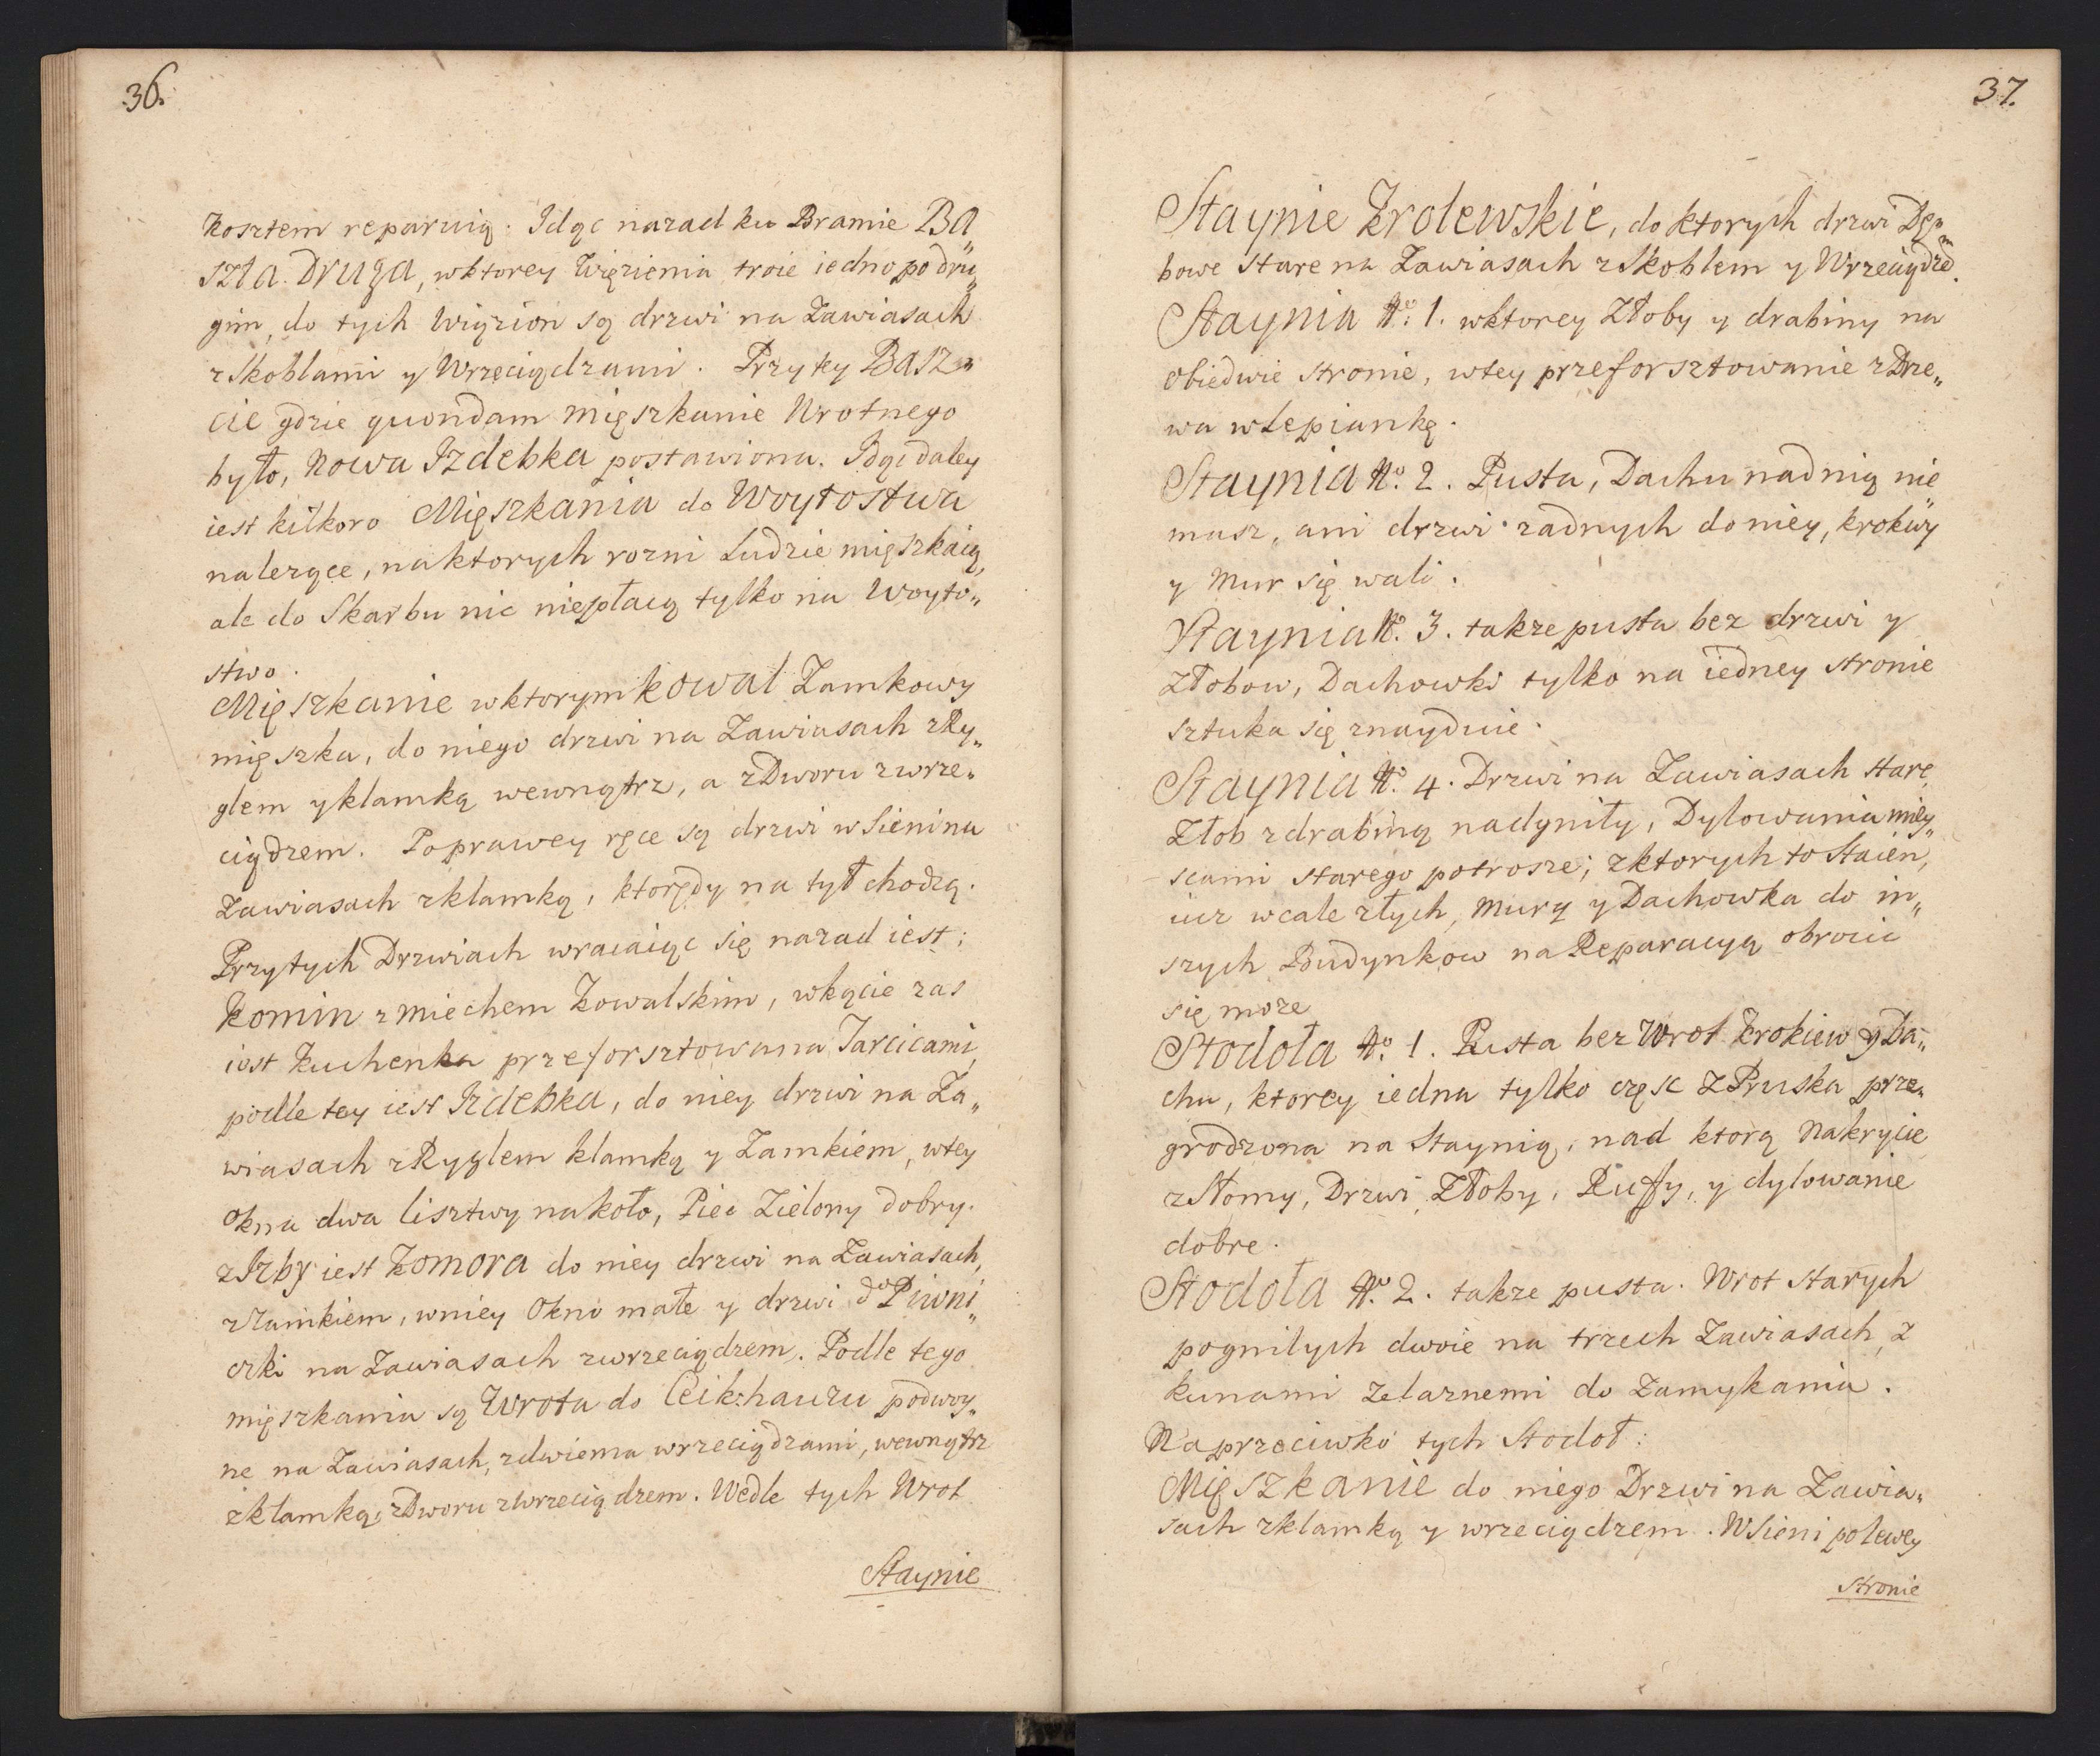 36.
kosztem reparuią. Idąc nazad ku Bramie Ba„
szta Druga, wktorey Więzienia troie iedno po dru„
gim, do tych Więzion są drzwi na Zawiasach
z Skoblami y Wrzeciądzami. Przy tey Basz„
cie gdzie quondam mięszkanie Wrotnego
było, Nowa Izdebka postawiona. Idąc daley
iest kilkoro Mięszkania do Woytostwa
nalezące, na ktorych rozni Ludzie mięszkaią,
ale do Skarbu nic niepłacą tylko na Woyto„
stwo.
Mięszkanie wktorym kowal Zamkowy
mięszka, do niego drzwi na Zawiasach z Ry„
glem y klamką wewnątrz, a z Dworu z wrze„
ciądzem. Po prawey ręce są drzwi w Sieni na
Zawiasach z klamką, ktorędy na tył chodzą.
Przy tych Drzwiach wracaiąc się nazad iest:
Komin z miechem Kowalskim, wkącie zas
iest Kuchenka przeforsztowana Tarcicami,
podle tey iest Izdebka, do niey drzwi na Za„
wiasach z Ryglem klamką y Zamkiem, wtey
Okna dwa lisztwy na koło, Piec Zielony dobry.
z Izby iest Komora do niey drzwi na Zawiasach,
z Zamkiem, wniey Okno małe y drzwi do Piwni„
czki na Zawiasach z wrzeciądzem. Podle tego
mięszkania są Wrota do Ceikhauzu podwoy„
ne na Zawiasach, z dwiema wrzeciądzami, wewnątrz
z klamką, z Dworu z Wrzeciądzem. Wedle tych Wrot
Staynie
37.
Staynie Krolewskie, do ktorych drzwi Dę„
bowe stare na Zawiasach z Skoblem y Wrzeciądzem.
Staynia No. 1. wktorey Złoby y drabiny na
obiedwie stronie, wtey przeforsztowanie z Drze„
wa w lepiankę.
Staynia No. 2. Pusta, Dachu nad nią nie
masz, ani drzwi zadnych do niey, krokwy
y Mur się wali.
Staynia No. 3. takze pusta bez drzwi y
Złobow, Dachowki tylko na iedney stronie
sztuka się znayduie.
Staynia No. 4. Drzwi na Zawiasach stare,
Złob z drabiną nadgniły, Dylowania miey„
scami starego potrosze; z ktorych to Staien,
iuz wcale złych, mury y Dachowka do in„
szych Budynkow na Reparacyą obrocic
się moze
Stodoła No. 1. Pusta bez Wrot Krokiew y Da„
chu, ktorey iedna tylko częsc z Pruska prze„
grodzona na Staynią, nad ktorą Nakrycie
z Słomy, Drzwi, Złoby, Ruffy, y dylowanie
dobre.
Stodoła No. 2. takze pusta. Wrot starych
pognilych dwoie na trzech Zawiasach, z
kunami zelaznemi do Zamykania.
Naprzeciwko tych Stodoł:
Mięszkanie do niego Drzwi na Zawia„
sach z klamką y wrzeciądzem. W Sieni po lewey
stronie